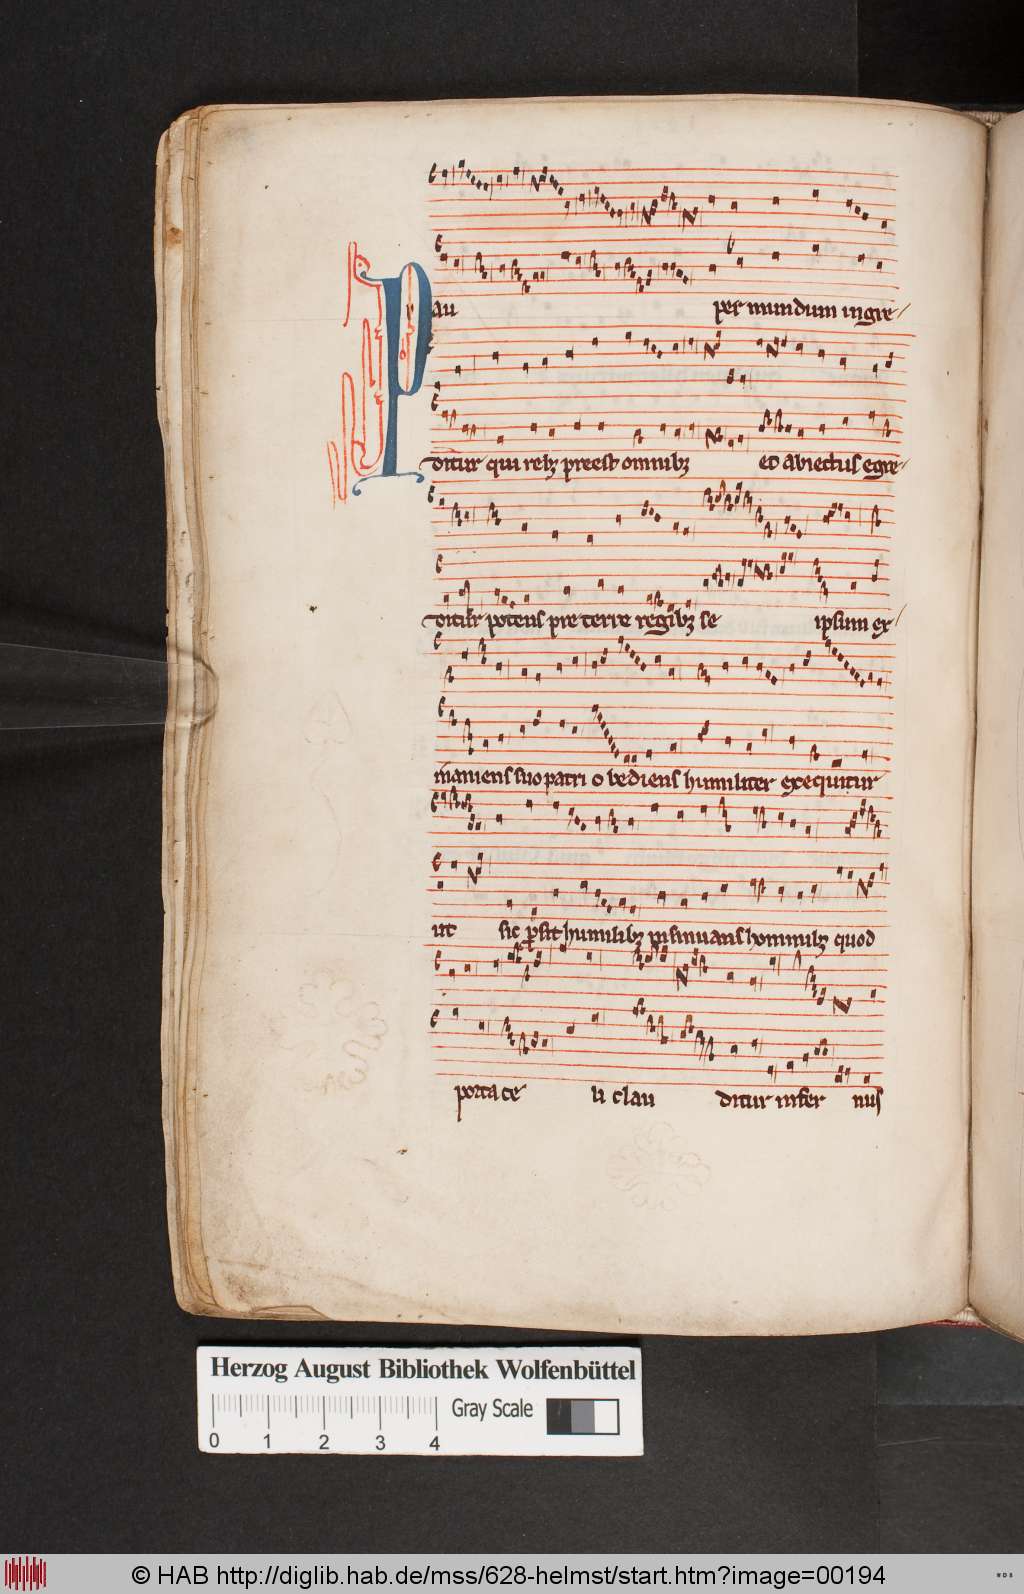 Pau per mundum ingre
ditur qui rebꝫ preest omnibꝫ et abiectus egre
ditur potens pre terre regibꝫ se ipsum ex
inaniens suo patri obediens humiliter exequitur
ut sic ꝓsit humilibꝫ insinuans hominibꝫ quod
porta ce li clau ditur infer nus
Herzog August Bibliothek Wolfenbüttel
Gray Scale
0 1 2 3 4
© HAB http://diglib.hab.de/mss/628-helmst/start.htm?image=00194